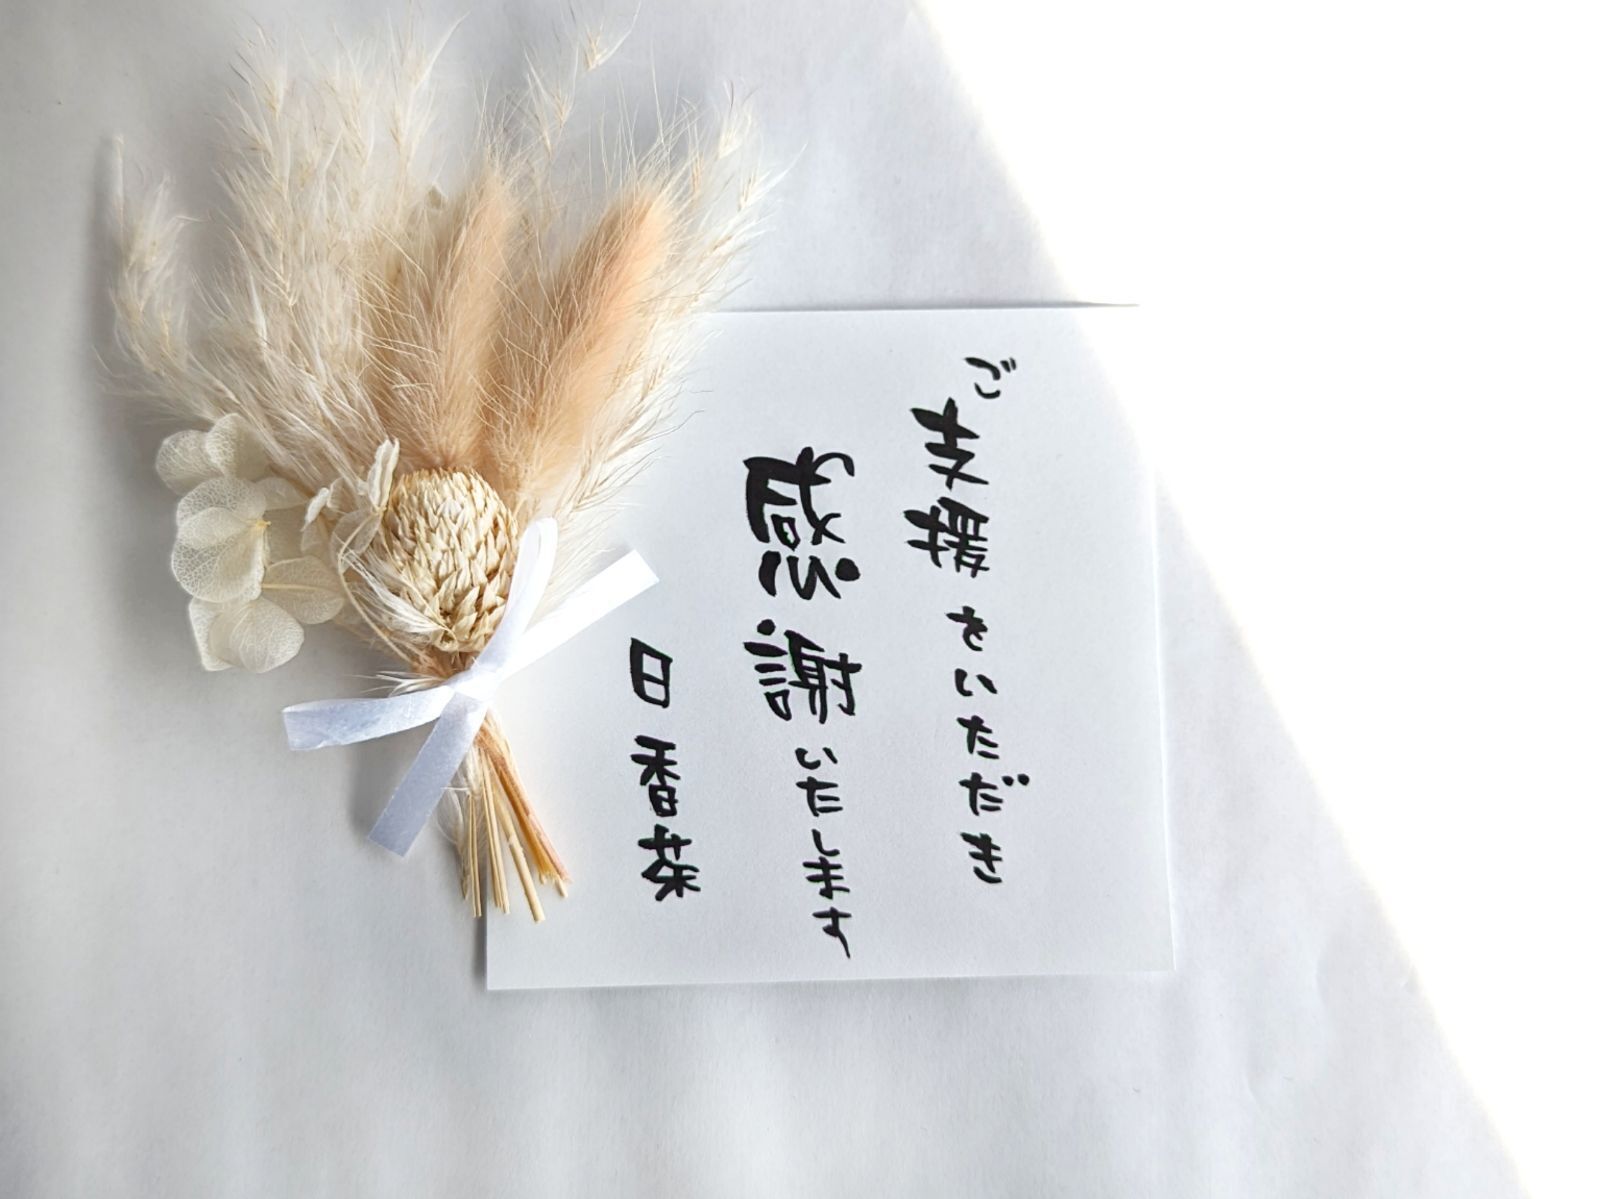 ご支援をいただき
感謝いたします
日香菜